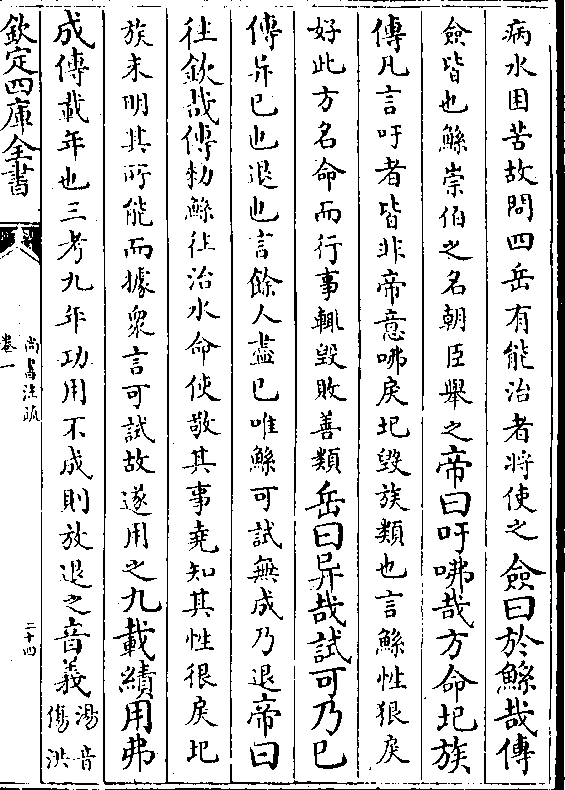 病水困苦故問四岳有能治者將使之僉曰於鯀哉傳
僉皆也鯀崇伯之名朝臣舉之帝曰吁咈哉方命圮族
傳凡言吁者皆非帝意咈戾圮毀族類也言鯀性狠戾
好此方名命而行事輒毀敗善類岳曰异哉試可乃已
傳异已也退也言餘人盡已唯鯀可試無成乃退帝曰
往欽哉傳勑鯀往治水命使敬其事堯知其性很戾圮
族未明其所能而據衆言可試故遂用之九載績用弗
成傳載年也三考九年功用不成則放退之音義湯音
傷洪
欽定四庫全書
尚書注疏
卷一
二十四